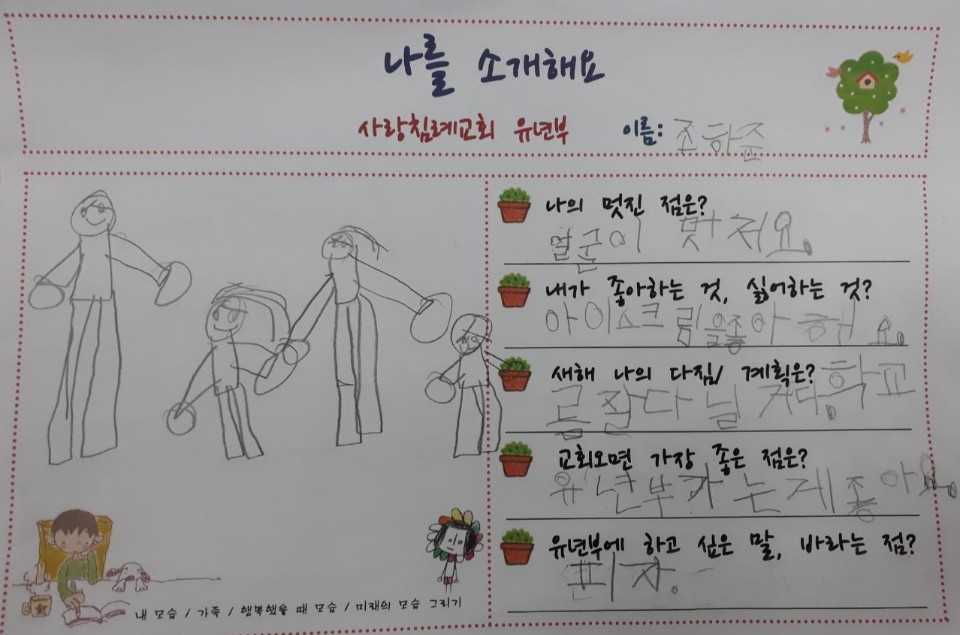 나를 소개해요
사랑침례교회 유년부 이름: 조하준
나의 멋진 점은?
얼굴이 머저요.
내가 좋아하는 것, 싫어하는 것?
아이스크림을좋아해요.
새해 나의 다짐/ 계획은?
학교
를 잘다닐
교회오면 가장 좋은 점은?
유년부가는게좋아요.
유년부에 하고 싶은 말, 바라는 점?
피자.
내 모습 / 가족 / 행복했을 때 모습 / 미래의 모습 그리기